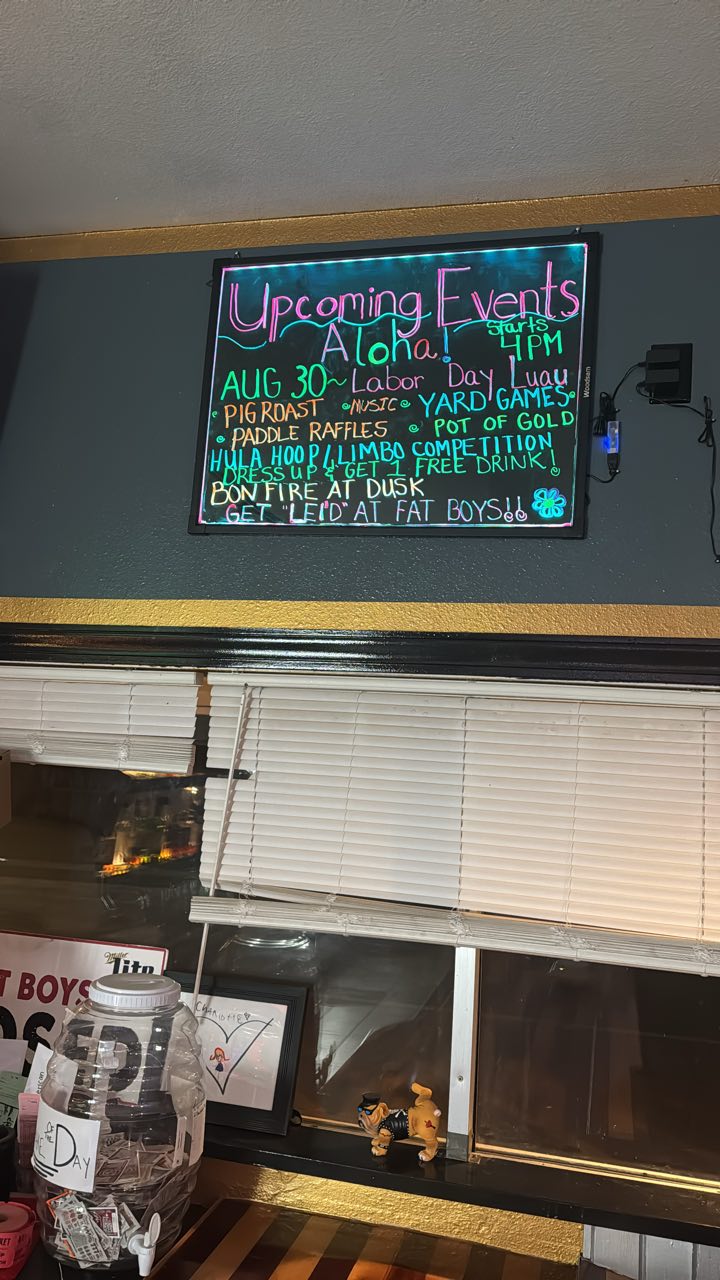 Upcoming Events
Aloha!
Starts
4PM
AUG 30~ Labor Day Luau
PIG ROAST • MUSIC • YARD GAMES
PADDLE RAFFLES POT OF GOLD
HULA HOOP / LIMBO COMPETITION
DRESS UP & GET 1 FREE DRINK!
BONFIRE AT DUSK
GET "LEI'D" AT FAT BOYS!!
Woodsam
Miller
lite
T BOYS
CHARLOTTE
OF THE
DAY